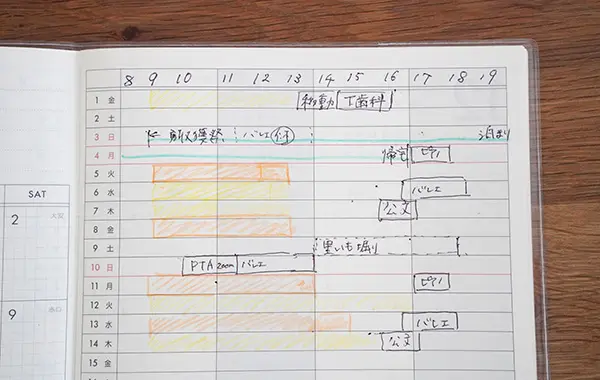 8 9 10 11 12 13 14 15 16 17 18 19
1 金 移動 T歯科
2 土
3 日 収穫祭 バレエ 泊まり
4 月 帰宅 ピアノ
5 火
6 水 バレエ
7 木 公文
8 金
9 土 里いも掘り
10 日 PTA zoom バレエ
11 月 ピアノ
12 火
13 水 バレエ
14 木 公文
15 金
SAT
2
9